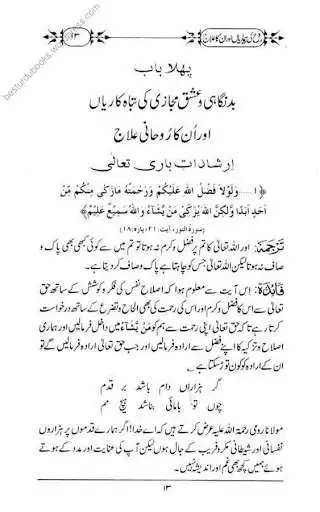 ۱۳
روح کی بیماریاں اور ان کا علاج
besturdubooks.wordpress.com
پہلا باب
بدنگاہی و عشق مجازی کی تباہ کاریاں
اور اُن کا روحانی علاج
ارشادات باری تعالیٰ
﴿۱… وَلَوْلَا فَضْلُ اللهِ عَلَيْكُمْ وَرَحْمَتُهٗ مَازَكٰى مِنْكُمْ مِّنْ
اَحَدٍ اَبَدًا وَّلٰكِنَّ اللهَ يُزَكِّىْ مَنْ يَّشَآءُ وَاللهُ سَمِيْعٌ عَلِيْمٌ﴾
(سورۃ النور، آیت:۲۱، پارہ:۱۸)
ترجمہ: اور اللہ تعالیٰ کا تم پر فضل و کرم نہ ہوتا تو تم میں سے کوئی کبھی بھی پاک و
صاف نہ ہوتا لیکن اللہ تعالیٰ جس کو چاہتا ہے پاک و صاف کر دیتا ہے۔
فائدہ: اس آیت سے معلوم ہوا کہ اصلاح نفس کی فکر و کوشش کے ساتھ حق
تعالیٰ سے اس کا فضل و کرم اور اس کی رحمت کی بھی الحاح و تضرع کے ساتھ درخواست
کرتا رہے تا کہ حق تعالیٰ اپنی رحمت سے ہم کو مَنْ يَّشَآءُ میں داخل فرمالیں اور ہماری
اصلاح و تزکیہ کا اپنے فضل سے ارادہ فرمالیں اور جب حق تعالیٰ ارادہ فرمالیں گے تو
ان کے ارادہ کو کون توڑ سکتا ہے۔
گر ہزاراں دام باشد بر قدم
چوں تو بامائی نباشد ہیچ غم
مولانا رومی رحمۃ اللہ علیہ عرض کرتے ہیں کہ اے خدا! اگر ہمارے قدموں پر ہزاروں
نفسانی اور شیطانی مکر و فریب کے جال ہوں لیکن آپ کی عنایت اور مدد کے ہوتے
ہوئے ہمیں کچھ بھی غم اور اندیشہ نہیں۔
۱۳